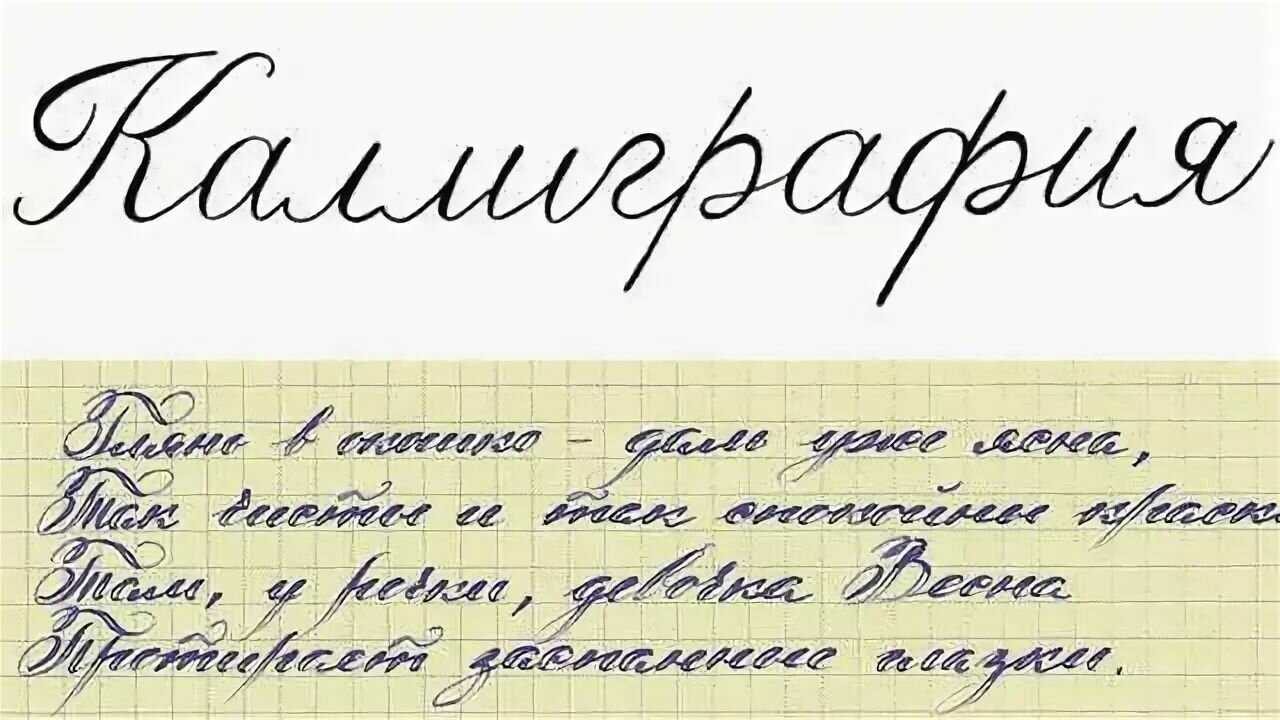 Каллиграфия
Глянь в окошко – даль уже ясна,
Так чисты и так спокойны краск
Там, у речки, девочка Весна
Протирает заспанные глазки.